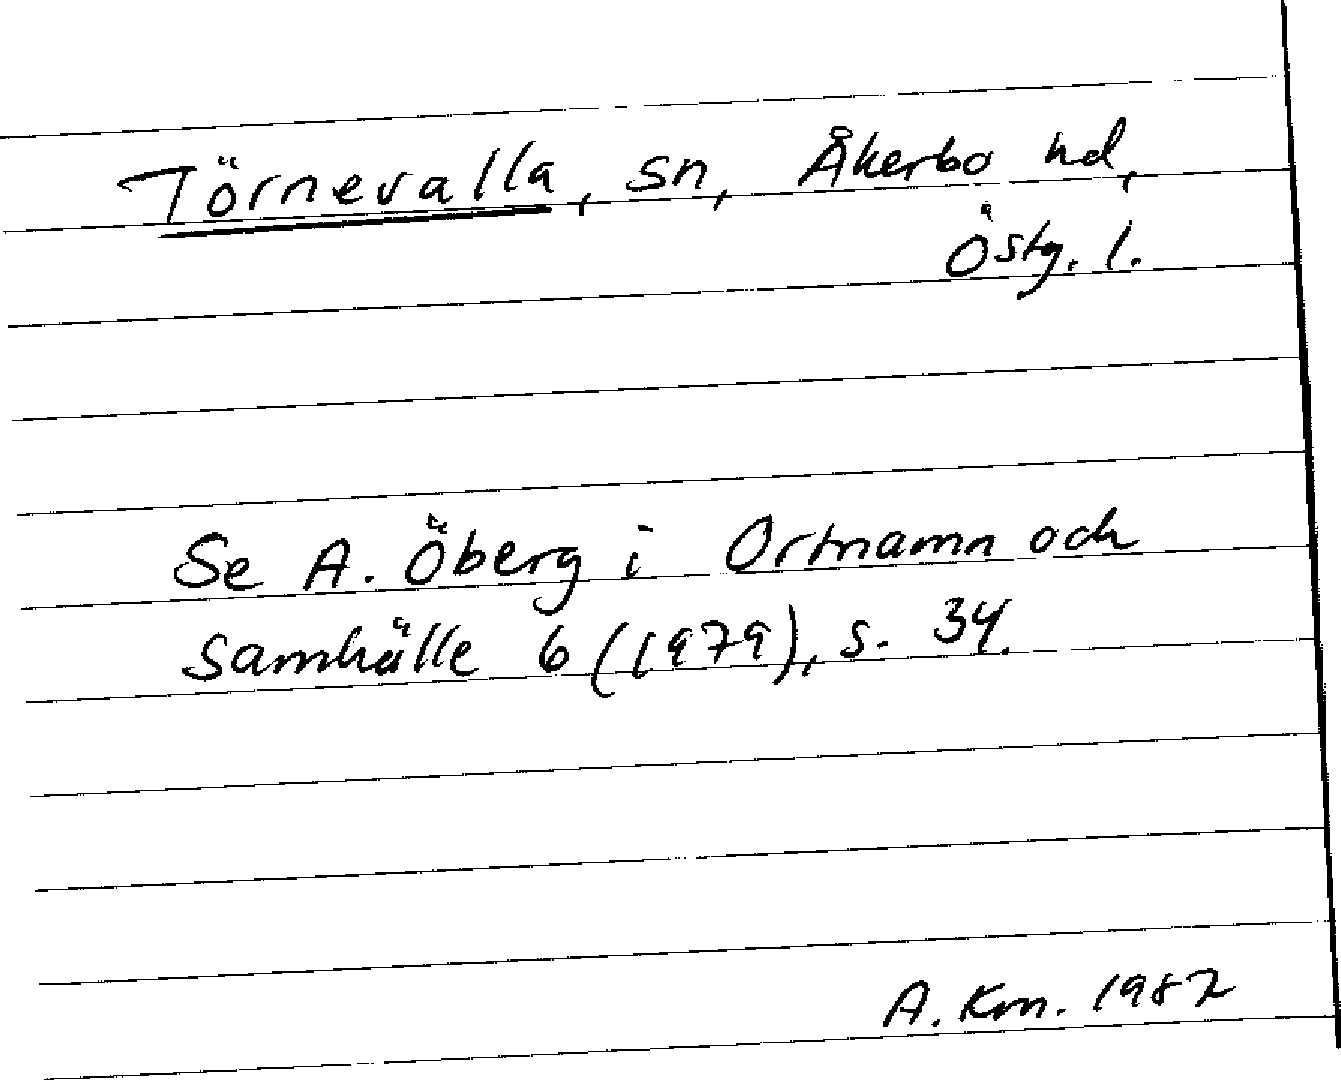 Törnevalla, sn, Åkerbo hd,
Östg. l.
Se A. Öberg i Ortnamn och
Samhälle 6 (1979), s. 34.
A. Krn. 1987